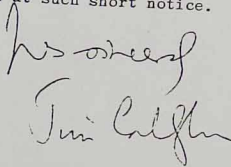 at such short notice.
Yrs sincerely
Jim Callaghan